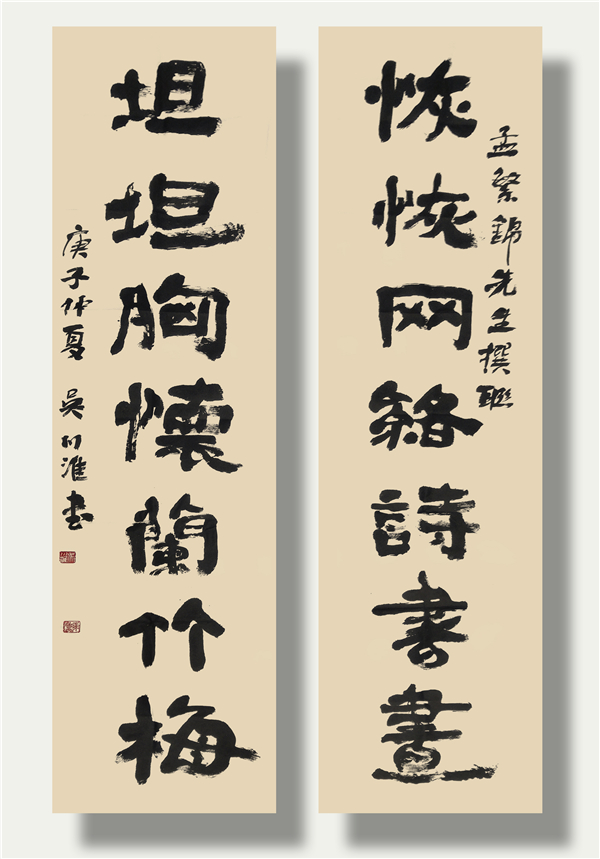 孟繁錦先生撰聯
恢恢网络詩書畫
坦坦胸懷蘭竹梅
庚子仲夏 吳淮书